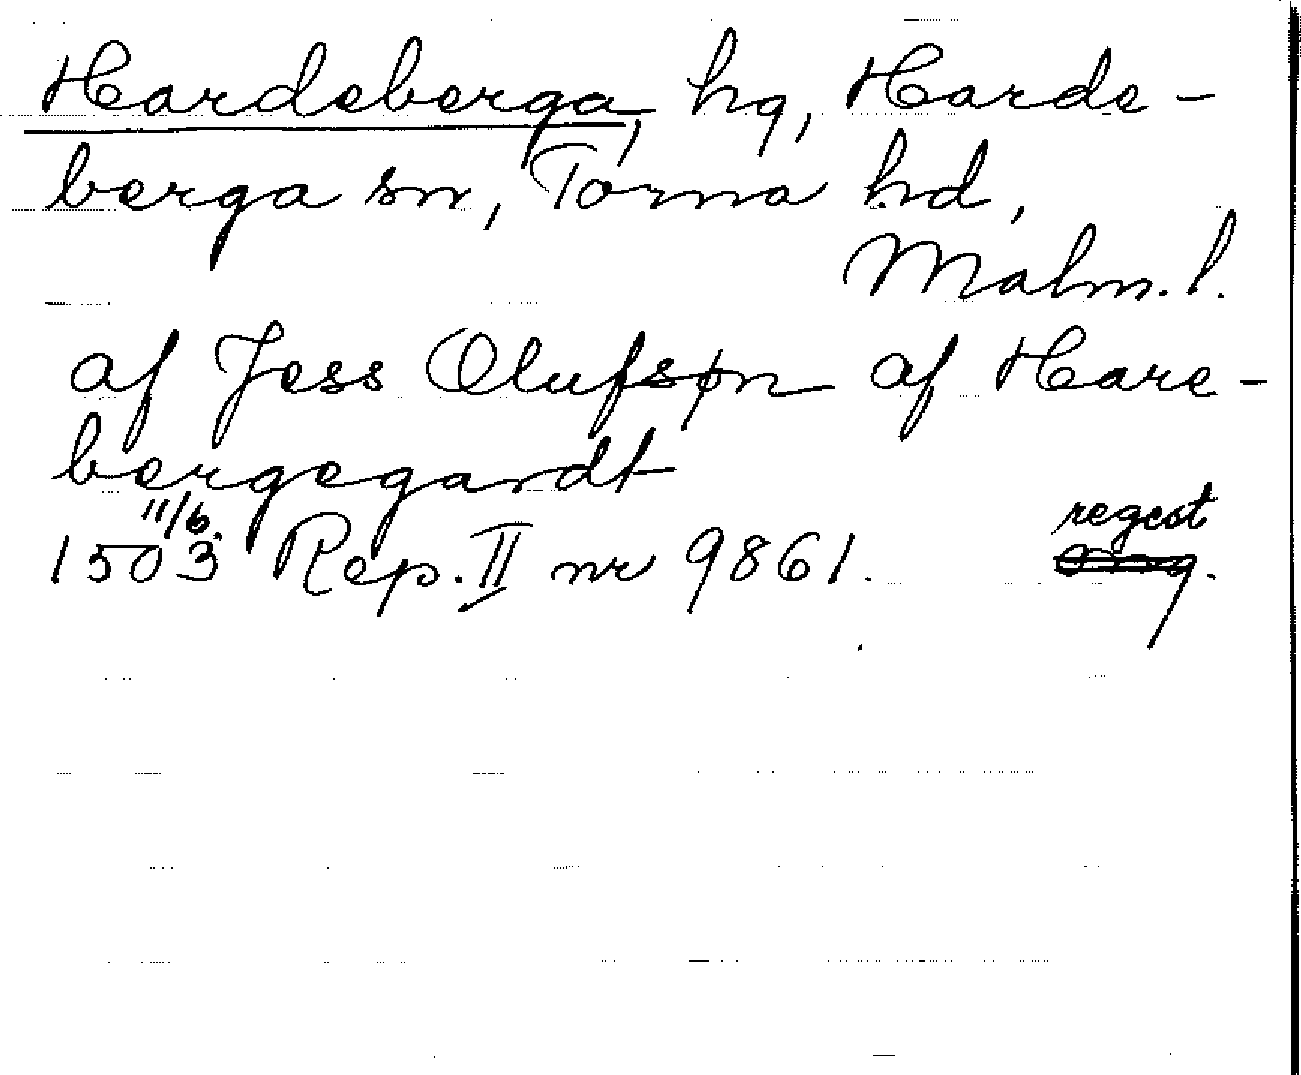 Hardeberga, hg, Harde-
berga sn, Torna hd,
Malm. l.
af Jess Olufsøn af Hare-
bergegardt
11/6.
1503 Rep. II nr 9861.
regest